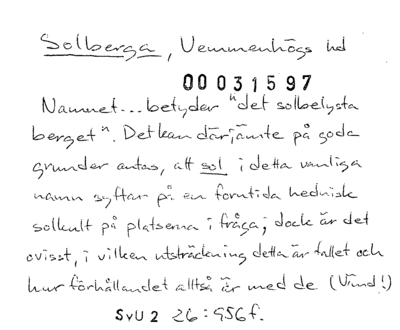 Solberga, Vemmenhögs hd
00031597
Namnet... betyder "det solbelysta
berget". Det kan därjämte på goda
grunder antas, att sol i detta vanliga
namn syftar på en forntida hednisk
solkult på platserna i fråga; dock är det
ovisst, i vilken utsträckning detta är fallet och
hur förhållandet alltså är med de (Vind!)
SvU 2 26:456f.